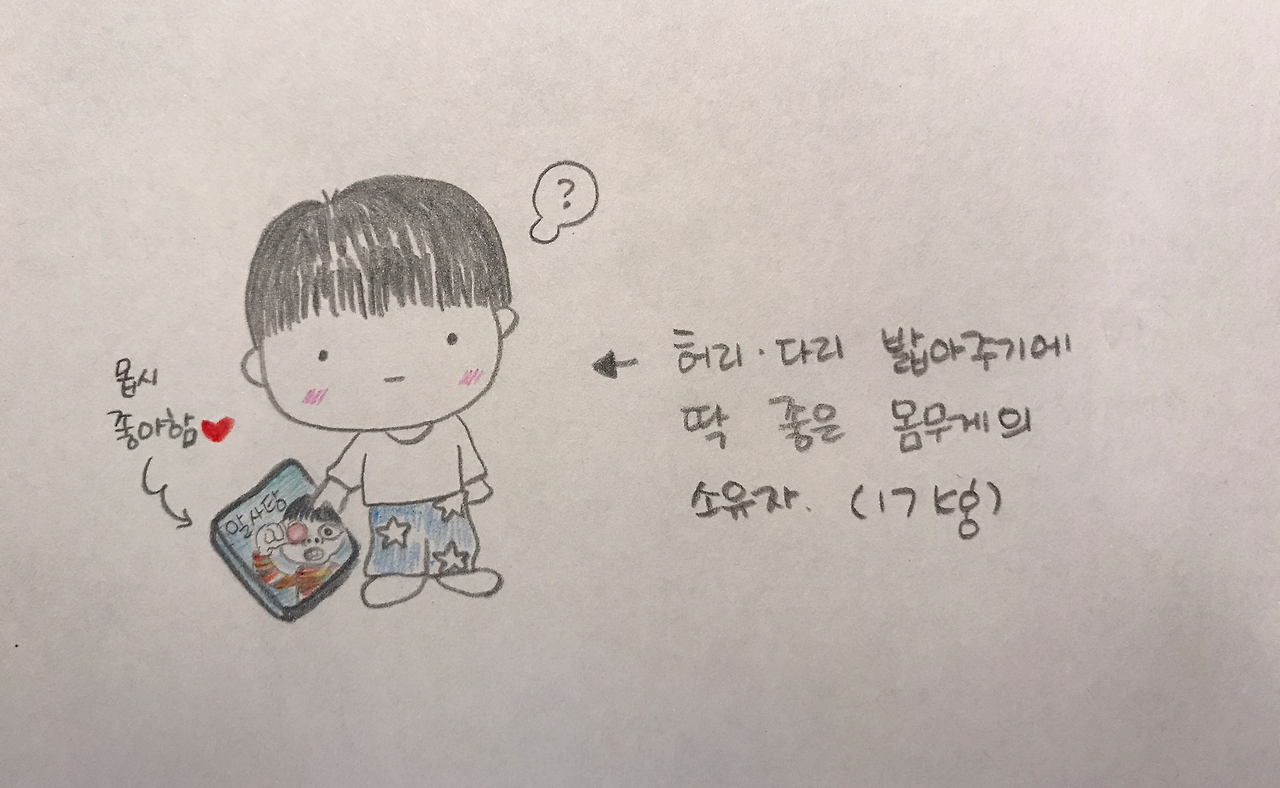 ?
몹시
좋아함
알사탕
허리·다리 밟아주기에
딱 좋은 몸무게의
소유자. (17kg)